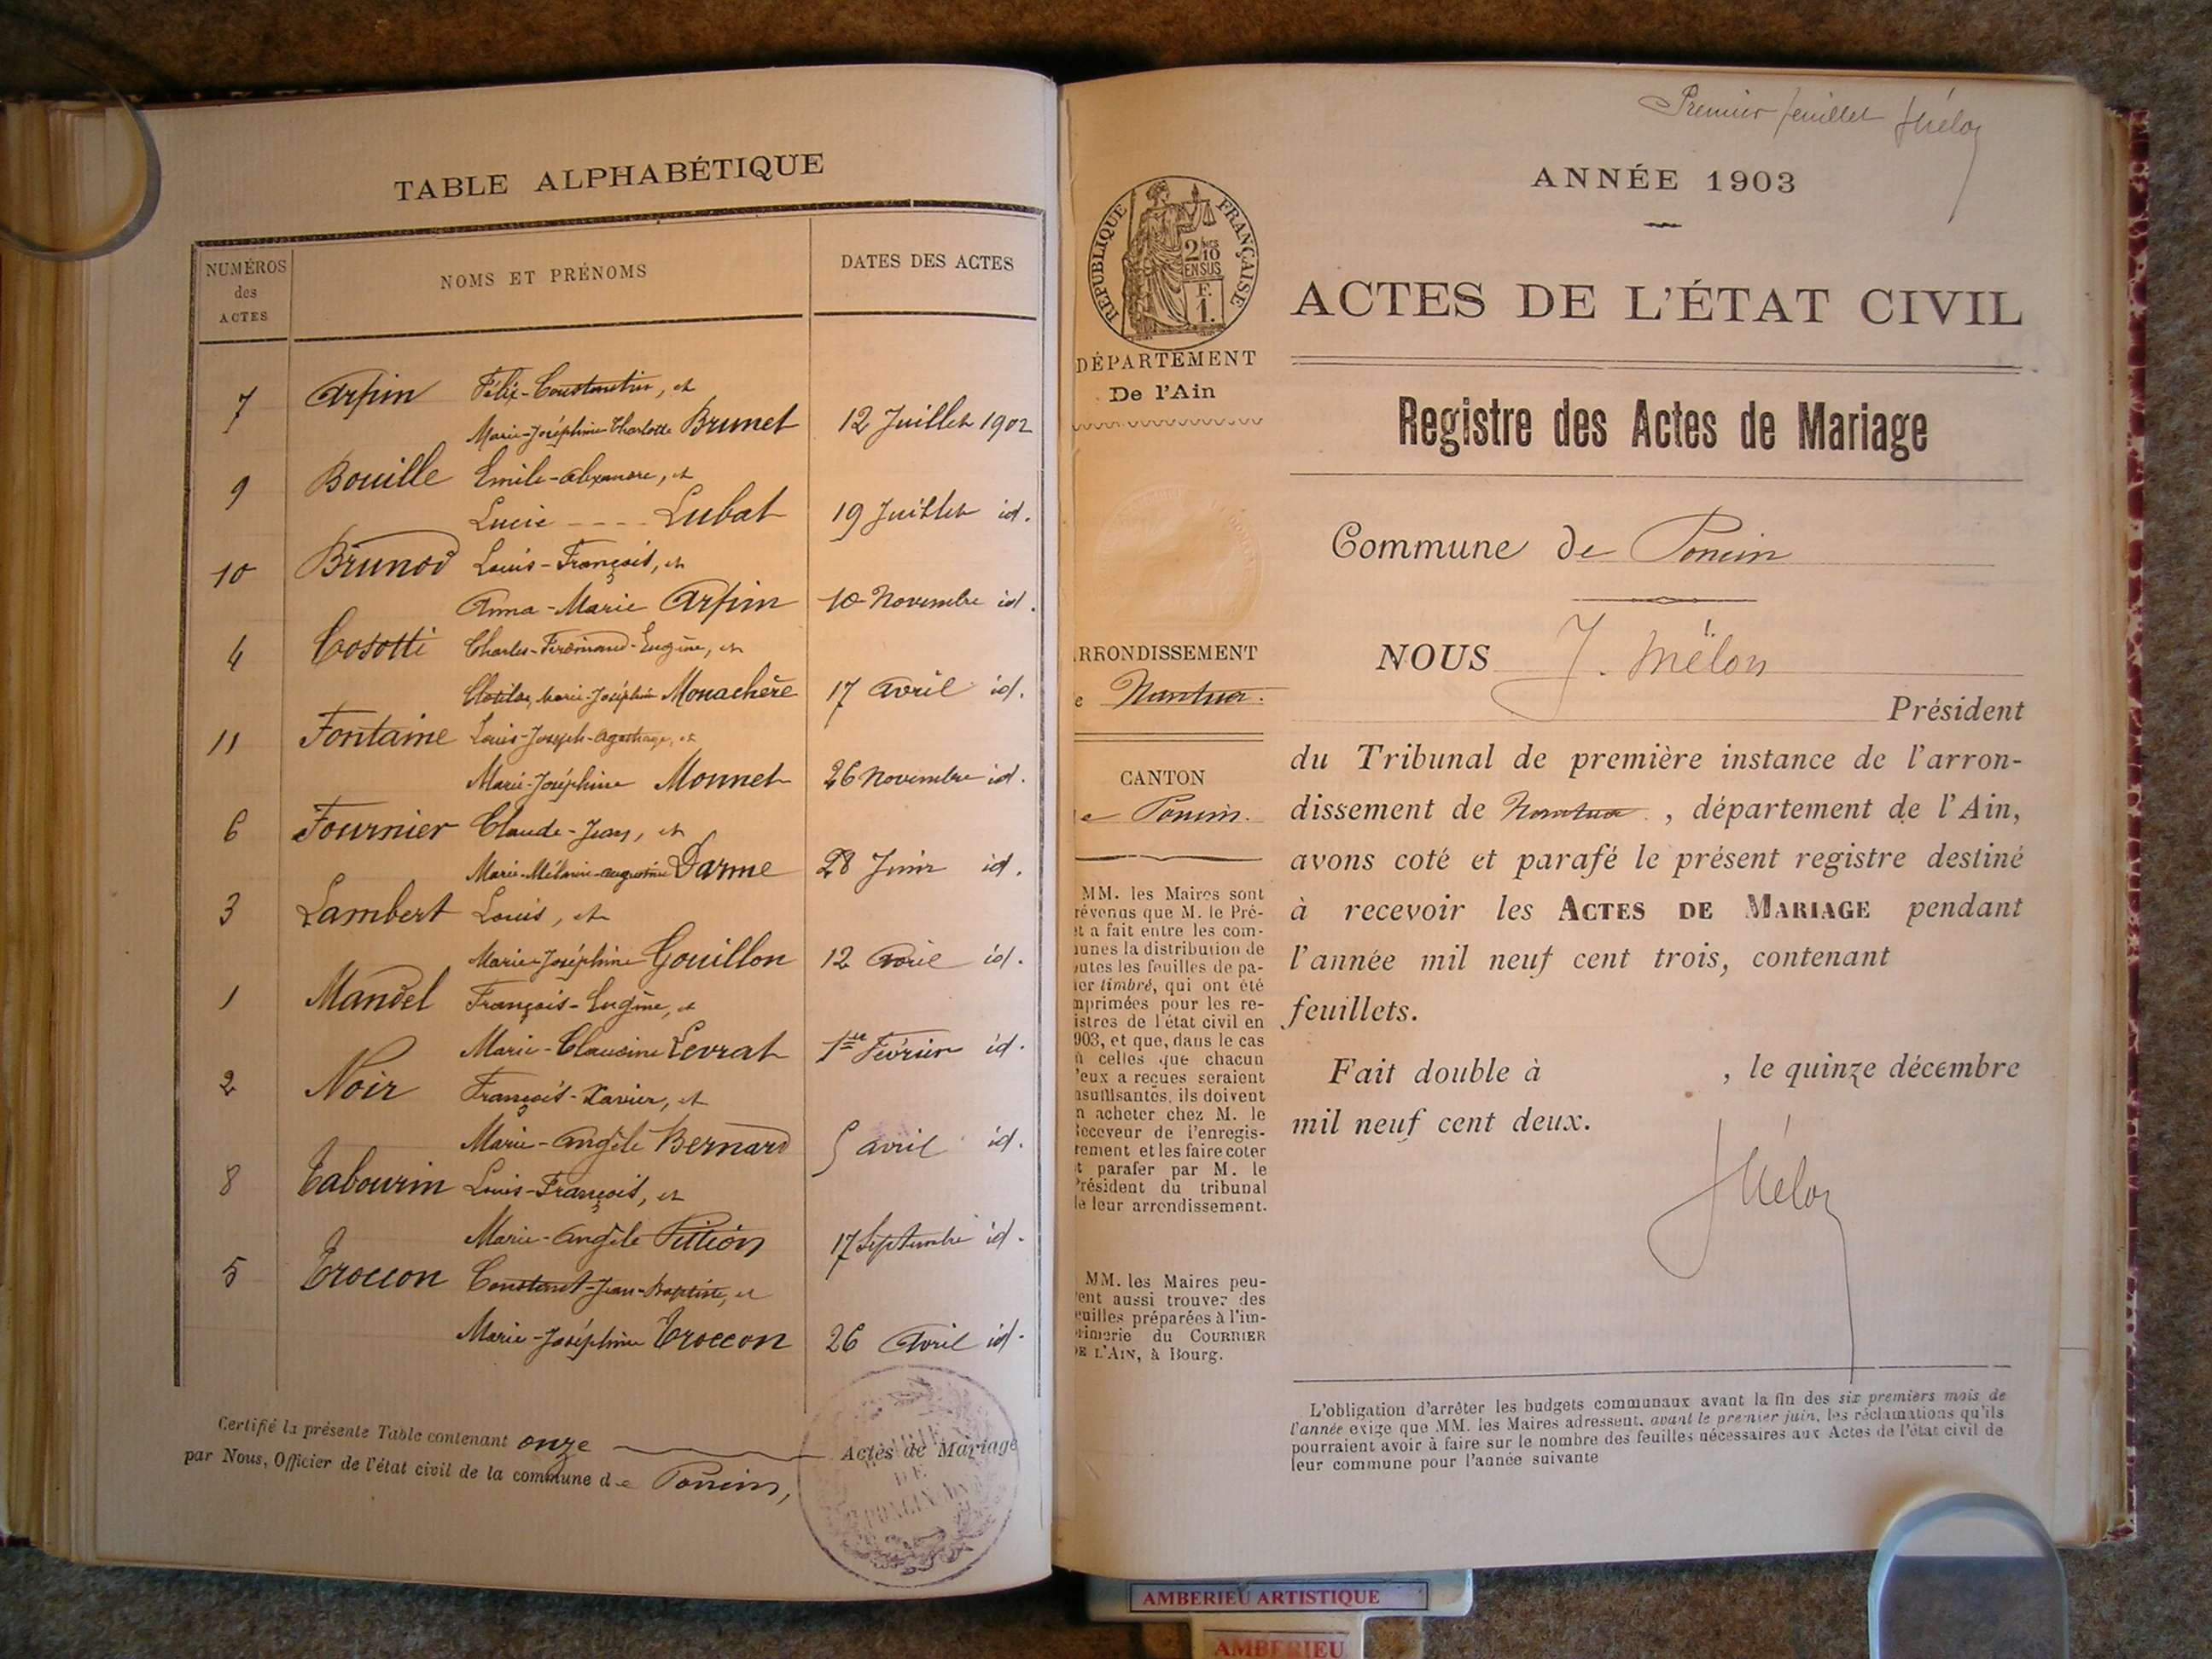 TABLE ALPHABÉTIQUE
NUMÉROS des ACTES
NOMS ET PRÉNOMS
DATES DES ACTES
7 Arpin Félix-Constantin, et
Marie-Joséphine Charlotte Brunet 12 Juillet 1902
9 Bouille Emile-Alexandre, et
Lucie Lubat 19 Juillet id.
10 Brunod Louis-François, et
Anna-Marie Arpin 10 Novembre id.
4 Cosotti Charles-Ferdinand-Eugène, et
Clotilde, Marie-Joséphine Monachère 17 Avril id.
11 Fontaine Louis-Joseph- et
Marie-Joséphine Monnet 26 Novembre id.
6 Fournier Claude-Jean, et
Marie-Mélanie-Augustine Darme 28 Juin id.
3 Lambert Louis, et
Marie-Joséphine Gouillon 12 Avril id.
1 Mandel François-Eugène, et
Marie-Claudine Levrat 1er Février id.
2 Noir François-Xavier, et
Marie-Angèle Bernard 5 avril id.
8 Tabourin Louis-François, et
Marie-Angèle Pittion 17 Septembre id.
5 Troccon Constant-Jean-Baptiste, et
Marie-Joséphine Troccon 26 Avril id.
Certifié la présente Table contenant onze Actes de Mariage
par Nous, Officier de l'état civil de la commune de Poncin,
Premier feuillet JMélon
RÉPUBLIQUE FRANÇAISE
2/10
EN SUS
F.
1.
DÉPARTEMENT
De l'Ain
RRONDISSEMENT
e Nantua.
CANTON
e Poncin.
MM. les Maires sont
révenus que M. le Pré-
et a fait entre les com-
unes la distribution de
utes les feuilles de pa-
ier timbré, qui ont été
mprimées pour les re-
istres de l'état civil en
903, et que, dans le cas
ù celles que chacun
'eux a reçues seraient
nsuffisantes, ils doivent
n acheter chez M. le
Receveur de l'enregis-
rement et les faire coter
t parafer par M. le
Président du tribunal
de leur arrondissement.
MM. les Maires peu-
ent aussi trouver des
euilles préparées à l'im-
rimerie du COURRIER
DE L'AIN, à Bourg.
ANNÉE 1903
ACTES DE L'ÉTAT CIVIL
Registre des Actes de Mariage
Commune de Poncin
NOUS J. Mélon
Président
du Tribunal de première instance de l'arron-
dissement de Nantua, département de l'Ain,
avons coté et parafé le présent registre destiné
à recevoir les ACTES DE MARIAGE pendant
l'année mil neuf cent trois, contenant
feuillets.
Fait double à , le quinze décembre
mil neuf cent deux.
JMélon
L'obligation d'arrêter les budgets communaux avant la fin des six premiers mois de
l'année exige que MM. les Maires adressent, avant le premier juin, les réclamations qu'ils
pourraient avoir à faire sur le nombre des feuilles nécessaires aux Actes de l'état civil de
leur commune pour l'année suivante
AMBERIEU ARTISTIQUE
AMBERIEU